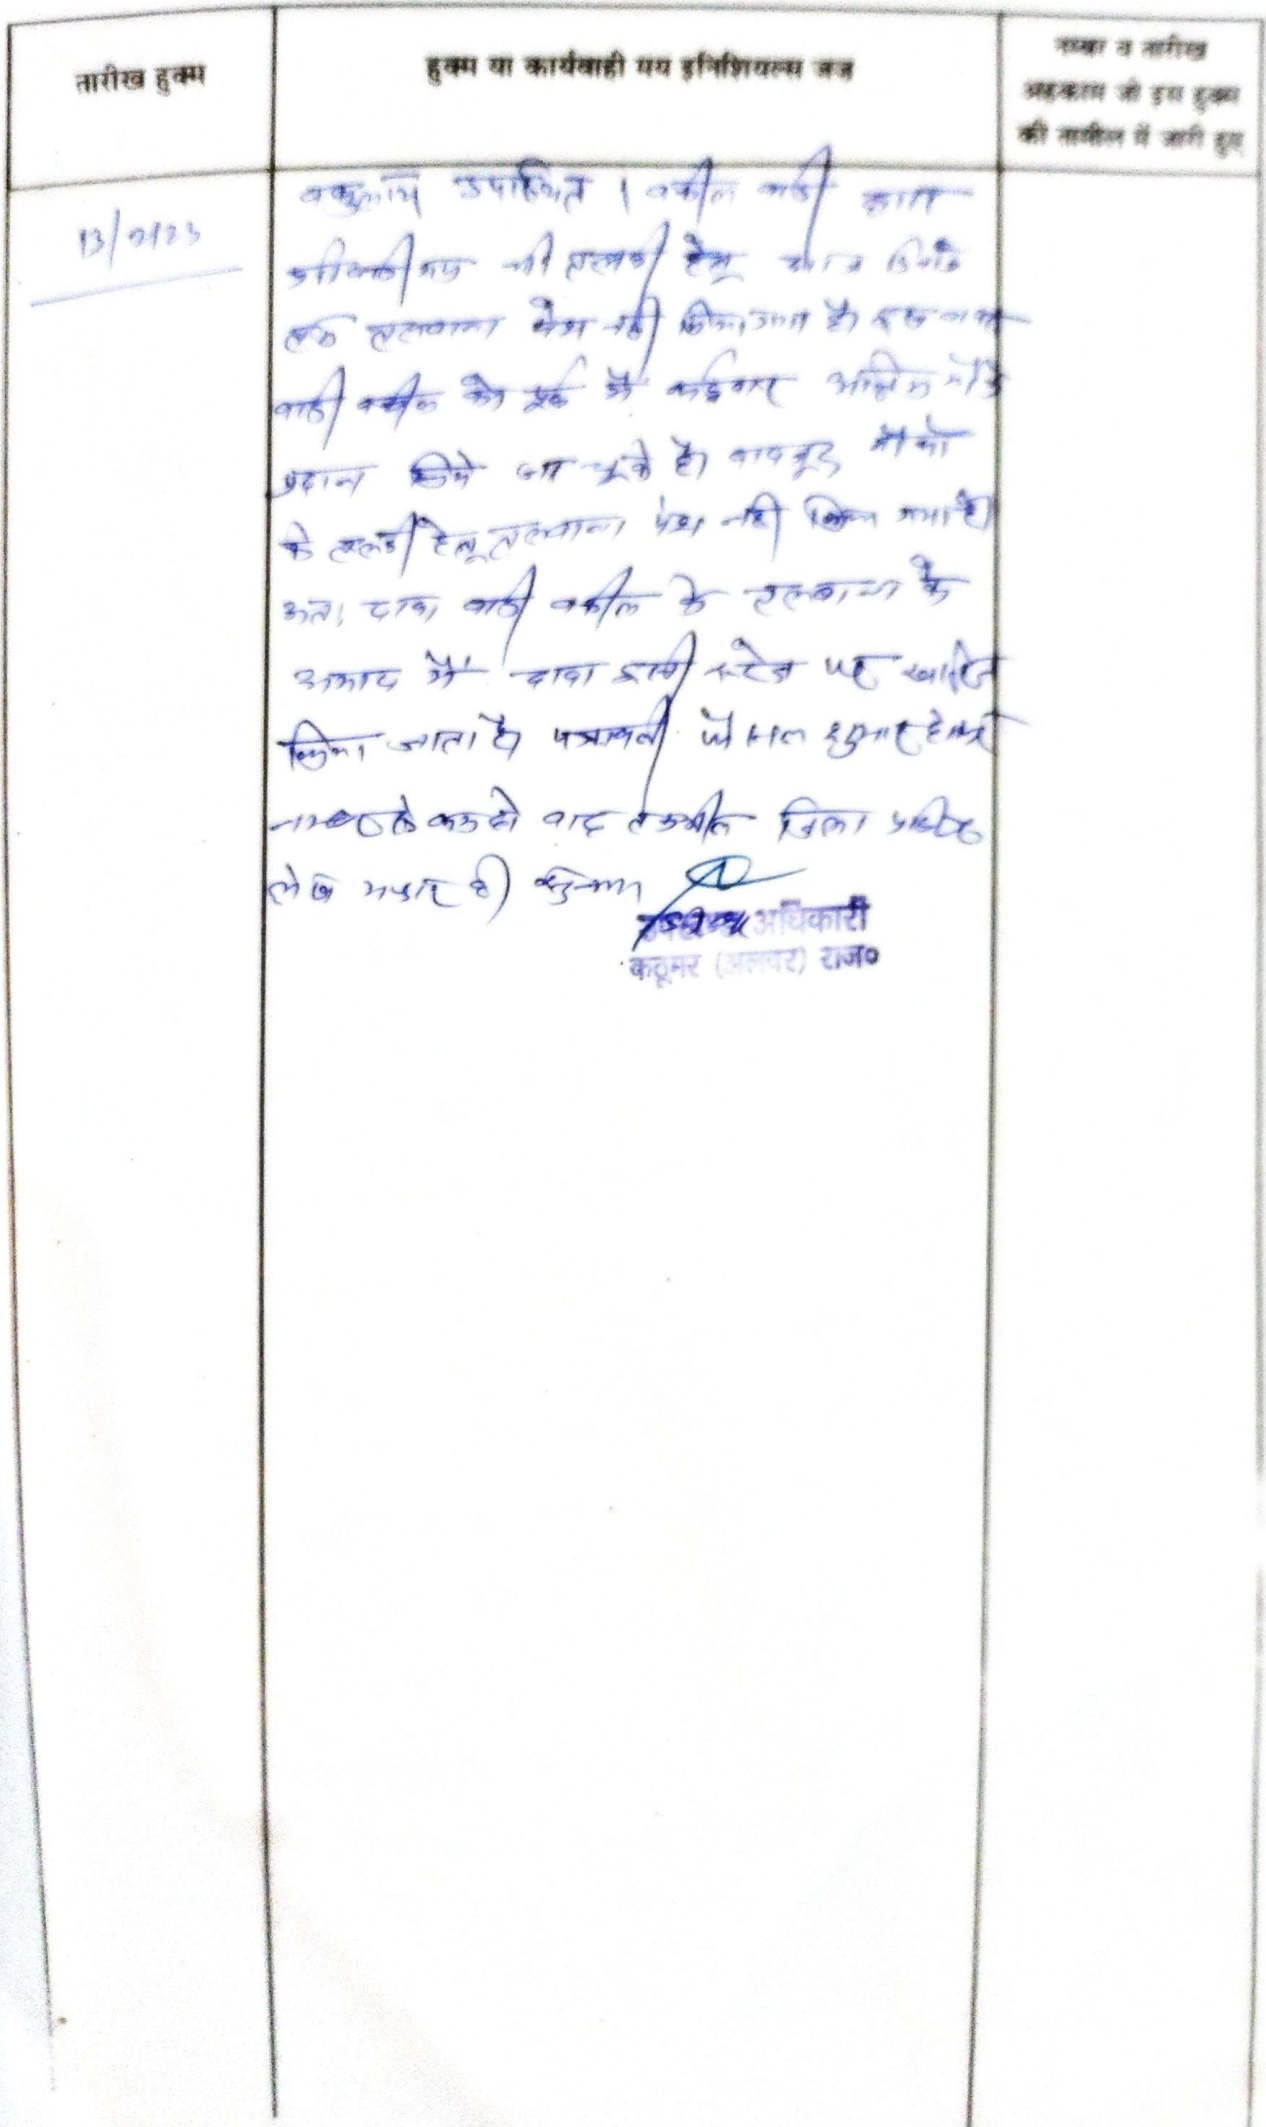 तारीख हुक्म
हुक्म या कार्यवाही मय इनिशियल्स जज
नम्बर व तारीख
अहकाम जो इस हुक्म
की तामील में जारी हुए
वकुलाय उपस्थित । वकील वादी द्वारा
प्रतिवादीगण की तलबी हेतु आज दिनांक
तक तलवाना पेश नही किया गया है। इस
वादी वकील को पूर्व में कईबार अन्तिम मौके
प्रदान किये जा चूके है। बावजूद मौको
के तलबी हेतू तलवाना पेश नही किया गया है।
अतः दावा वादी वकील के तलवाना के
अभाव में दावा इसी स्टेज पर खारिज
किया जाता है। पत्रावली फैसल शुमार होकर
बाद तकमील जिला अभिलेख
अधिकारी
कठूमर (अलवर) राज०